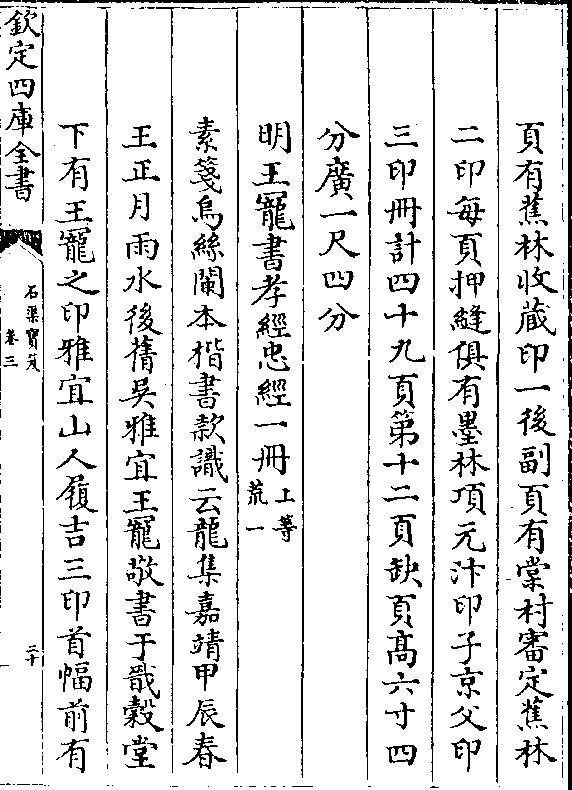 頁有蕉林收蔵印一後副頁有棠村審定蕉林
二印每頁押縫俱有墨林項元汴印子京父印
三印冊計四十九頁第十二頁缺頁髙六寸四
分廣一尺四分
明王寵書孝經忠經一冊上等荒一
素箋烏絲闌本楷書款識云龍集嘉靖甲辰春
王正月雨水後舊吳雅宜王寵敬書于戩穀堂
下有王寵之印雅宜山人履吉三印首幅前有
欽定四庫全書
石渠寶笈
卷三
二十